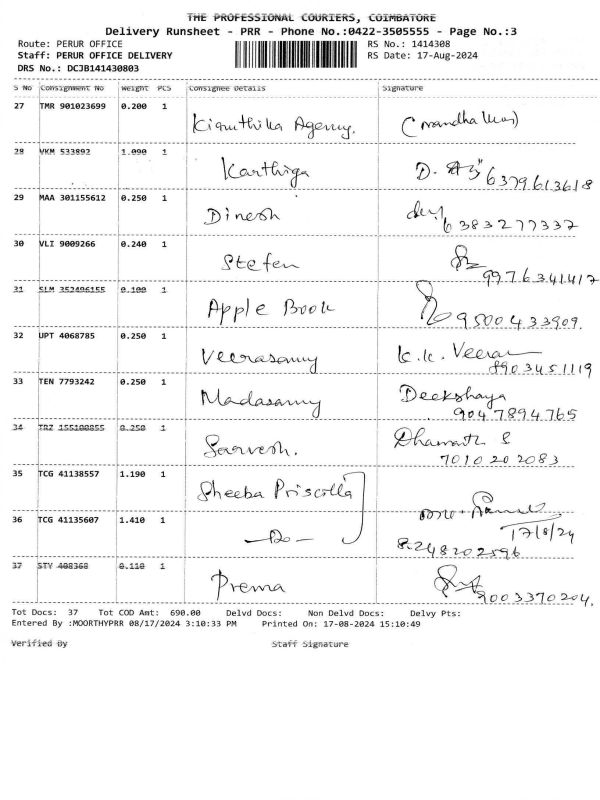 THE PROFESSIONAL COURIERS, COIMBATORE
Delivery Runsheet - PRR - Phone No.:0422-3505555 - Page No.:3
Route: PERUR OFFICE RS No.: 1414308
Staff: PERUR OFFICE DELIVERY RS Date: 17-Aug-2024
DRS No.: DCJB141430803
S No Consignment No Weight PCS Consignee Details Signature
27 TMR 901023699 0.200 1
Agency.
28 VKM 533892 1.090 1
Karthiga D. 6379613618
29 MAA 301155612 0.250 1
Dinesh
6383277337
30 VLI 9009266 0.240 1
Stefen
9976341417
31 SLM 352406155 0.100 1
Apple Book
9500433909.
32 UPT 4068785 0.250 1
Veerasamy K.K. Veeran
8903451119
33 TEN 7793242 0.250 1
Madasamy Deekshaya
9047894765
34 TRZ 155100855 0.250 1
Sarvesh.
7010202083
35 TCG 41138557 1.190 1
Sheeba Priscilla
36 TCG 41135607 1.410 1
17/8/24
- Do - 8248202596
37 STY 408368 0.110 1
Prema
9003370204.
Tot Docs: 37 Tot COD Amt: 690.00 Delvd Docs: Non Delvd Docs: Delvy Pts:
Entered By :MOORTHYPRR 08/17/2024 3:10:33 PM Printed On: 17-08-2024 15:10:49
Verified By Staff Signature